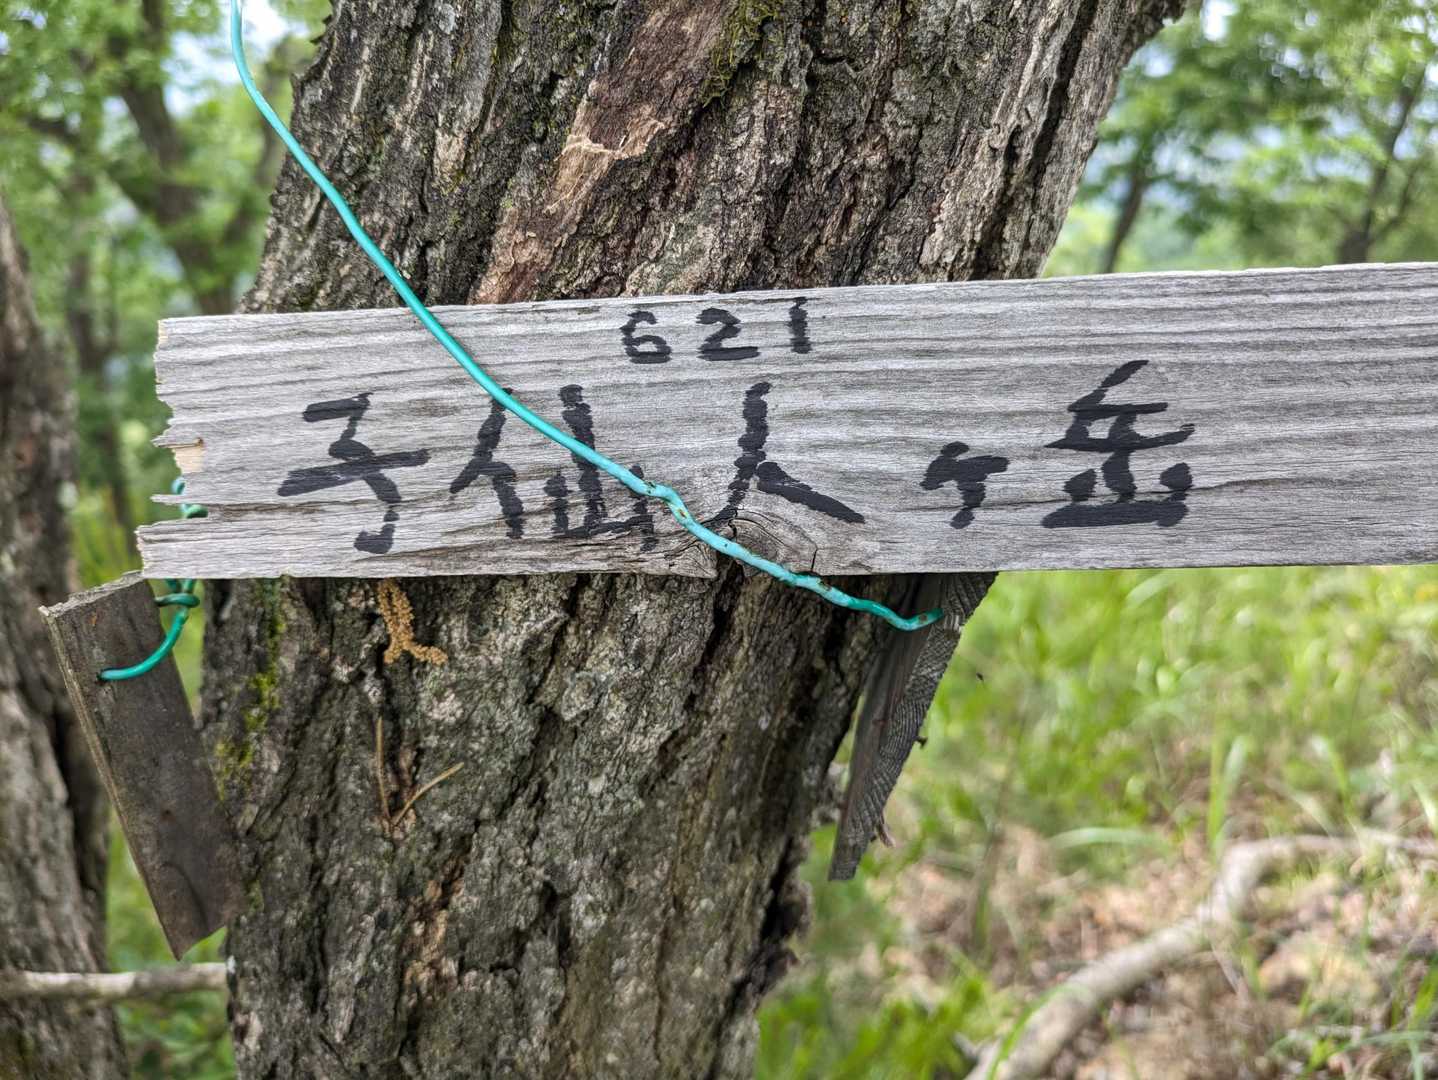 621
子仙人ヶ岳